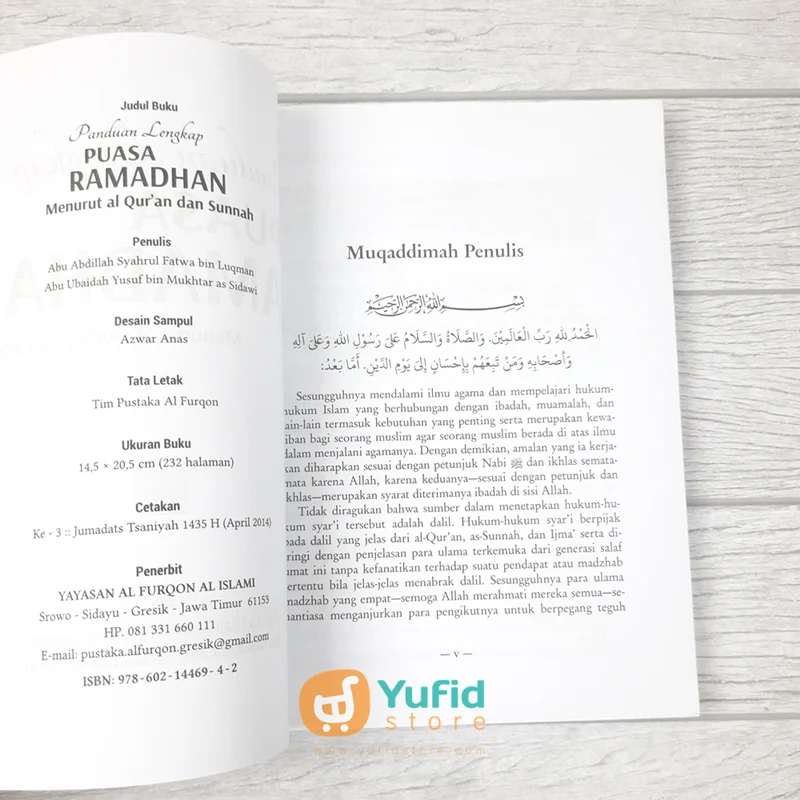 Judul Buku
Panduan Lengkap
PUASA
RAMADHAN
Menurut al Qur'an dan Sunnah
Penulis
Abu Abdillah Syahrul Fatwa bin Luqman
Abu Ubaidah Yusuf bin Mukhtar as Sidawi
Desain Sampul
Azwar Anas
Tata Letak
Tim Pustaka Al Furqon
Ukuran Buku
14,5 × 20,5 cm (232 halaman)
Cetakan
Ke - 3 :: Jumadats Tsaniyah 1435 H (April 2014)
Penerbit
YAYASAN AL FURQON AL ISLAMI
Srowo - Sidayu - Gresik - Jawa Timur 61153
HP. 081 331 660 111
E-mail: pustaka.alfurqon.gresik@gmail.com
ISBN: 978-602-14469-4-2
Muqaddimah Penulis
بِسْمِ اللهِ الرَّحْمَنِ الرَّحِيْمِ
الْحَمْدُ لِلهِ رَبِّ الْعَالَمِيْنَ. وَالصَّلَاةُ وَالسَّلَامُ عَلَى رَسُوْلِ اللهِ وَعَلَى آلِهِ
وَأَصْحَابِهِ وَمَنْ تَبِعَهُمْ بِإِحْسَانٍ إِلَى يَوْمِ الدِّيْنِ. أَمَّا بَعْدُ:
Sesungguhnya mendalami ilmu agama dan mempelajari hukum-
hukum Islam yang berhubungan dengan ibadah, muamalah, dan
lain-lain termasuk kebutuhan yang penting serta merupakan kewa-
iban bagi seorang muslim agar seorang muslim berada di atas ilmu
dalam menjalani agamanya. Dengan demikian, amalan yang ia kerja-
kan diharapkan sesuai dengan petunjuk Nabi ﷺ dan ikhlas semata-
mata karena Allah, karena keduanya—sesuai dengan petunjuk dan
khlas—merupakan syarat diterimanya ibadah di sisi Allah.
Tidak diragukan bahwa sumber dalam menetapkan hukum-hu-
kum syar'i tersebut adalah dalil. Hukum-hukum syar'i berpijak
pada dalil yang jelas dari al-Qur'an, as-Sunnah, dan Ijma' serta di-
ringi dengan penjelasan para ulama terkemuka dari generasi salaf
umat ini tanpa kefanatikan terhadap suatu pendapat atau madzhab
ertentu bila jelas-jelas menabrak dalil. Sesungguhnya para ulama
madzhab yang empat—semoga Allah merahmati mereka semua—se-
nantiasa menganjurkan para pengikutnya untuk berpegang teguh
— v —
Yufid
store
www.yufidstore.com